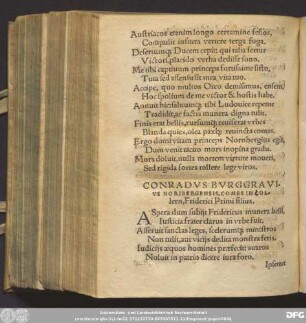 Austriacos etenim longo certamine fessos,
Compulit insueta vertere terga fuga.
Deseruitq; Ducem cepit; qui talia fertur
Victori placido verba dedisse sono.
Me tibi captiuum princeps fortissime sisto,
Tuta sed assensu sit mea vita tuo.
Accipe, quo multos Orco demisimus, ensem,
Hoc spolium de me victor & hostis habe.
Annuit hic tibi Ludouice
Tradidit, ac factis munera digna tulit.
Finis erat bellis, rursumq; reuiserat vrbes
Blanda quies, olea paxq; reuincta comas.
Ergo domi vitam princeps Nornbergius egit,
Dum venit tacito mors inopina gradu.
Mors doluit, nulla mortem virtute moueri,
Sed rigida fortes tollere lege viros.
CONRADVS BVRGGRAVI
VS NORIBERGENSIS, COMES IN ZOL
lern, Friderici Primi filius.
ASpera dum subijt Fridericus munera belli,
Iusticia frater clarus in vrbe fuit.
Asseruit sanctas leges, sceleratq; monstros
Non tulit, aut vicijs dedita monstra feris.
Iudicijs æquos homines præfecit auaros
Noluit in patrio dicere iura foro,
Ipsemet